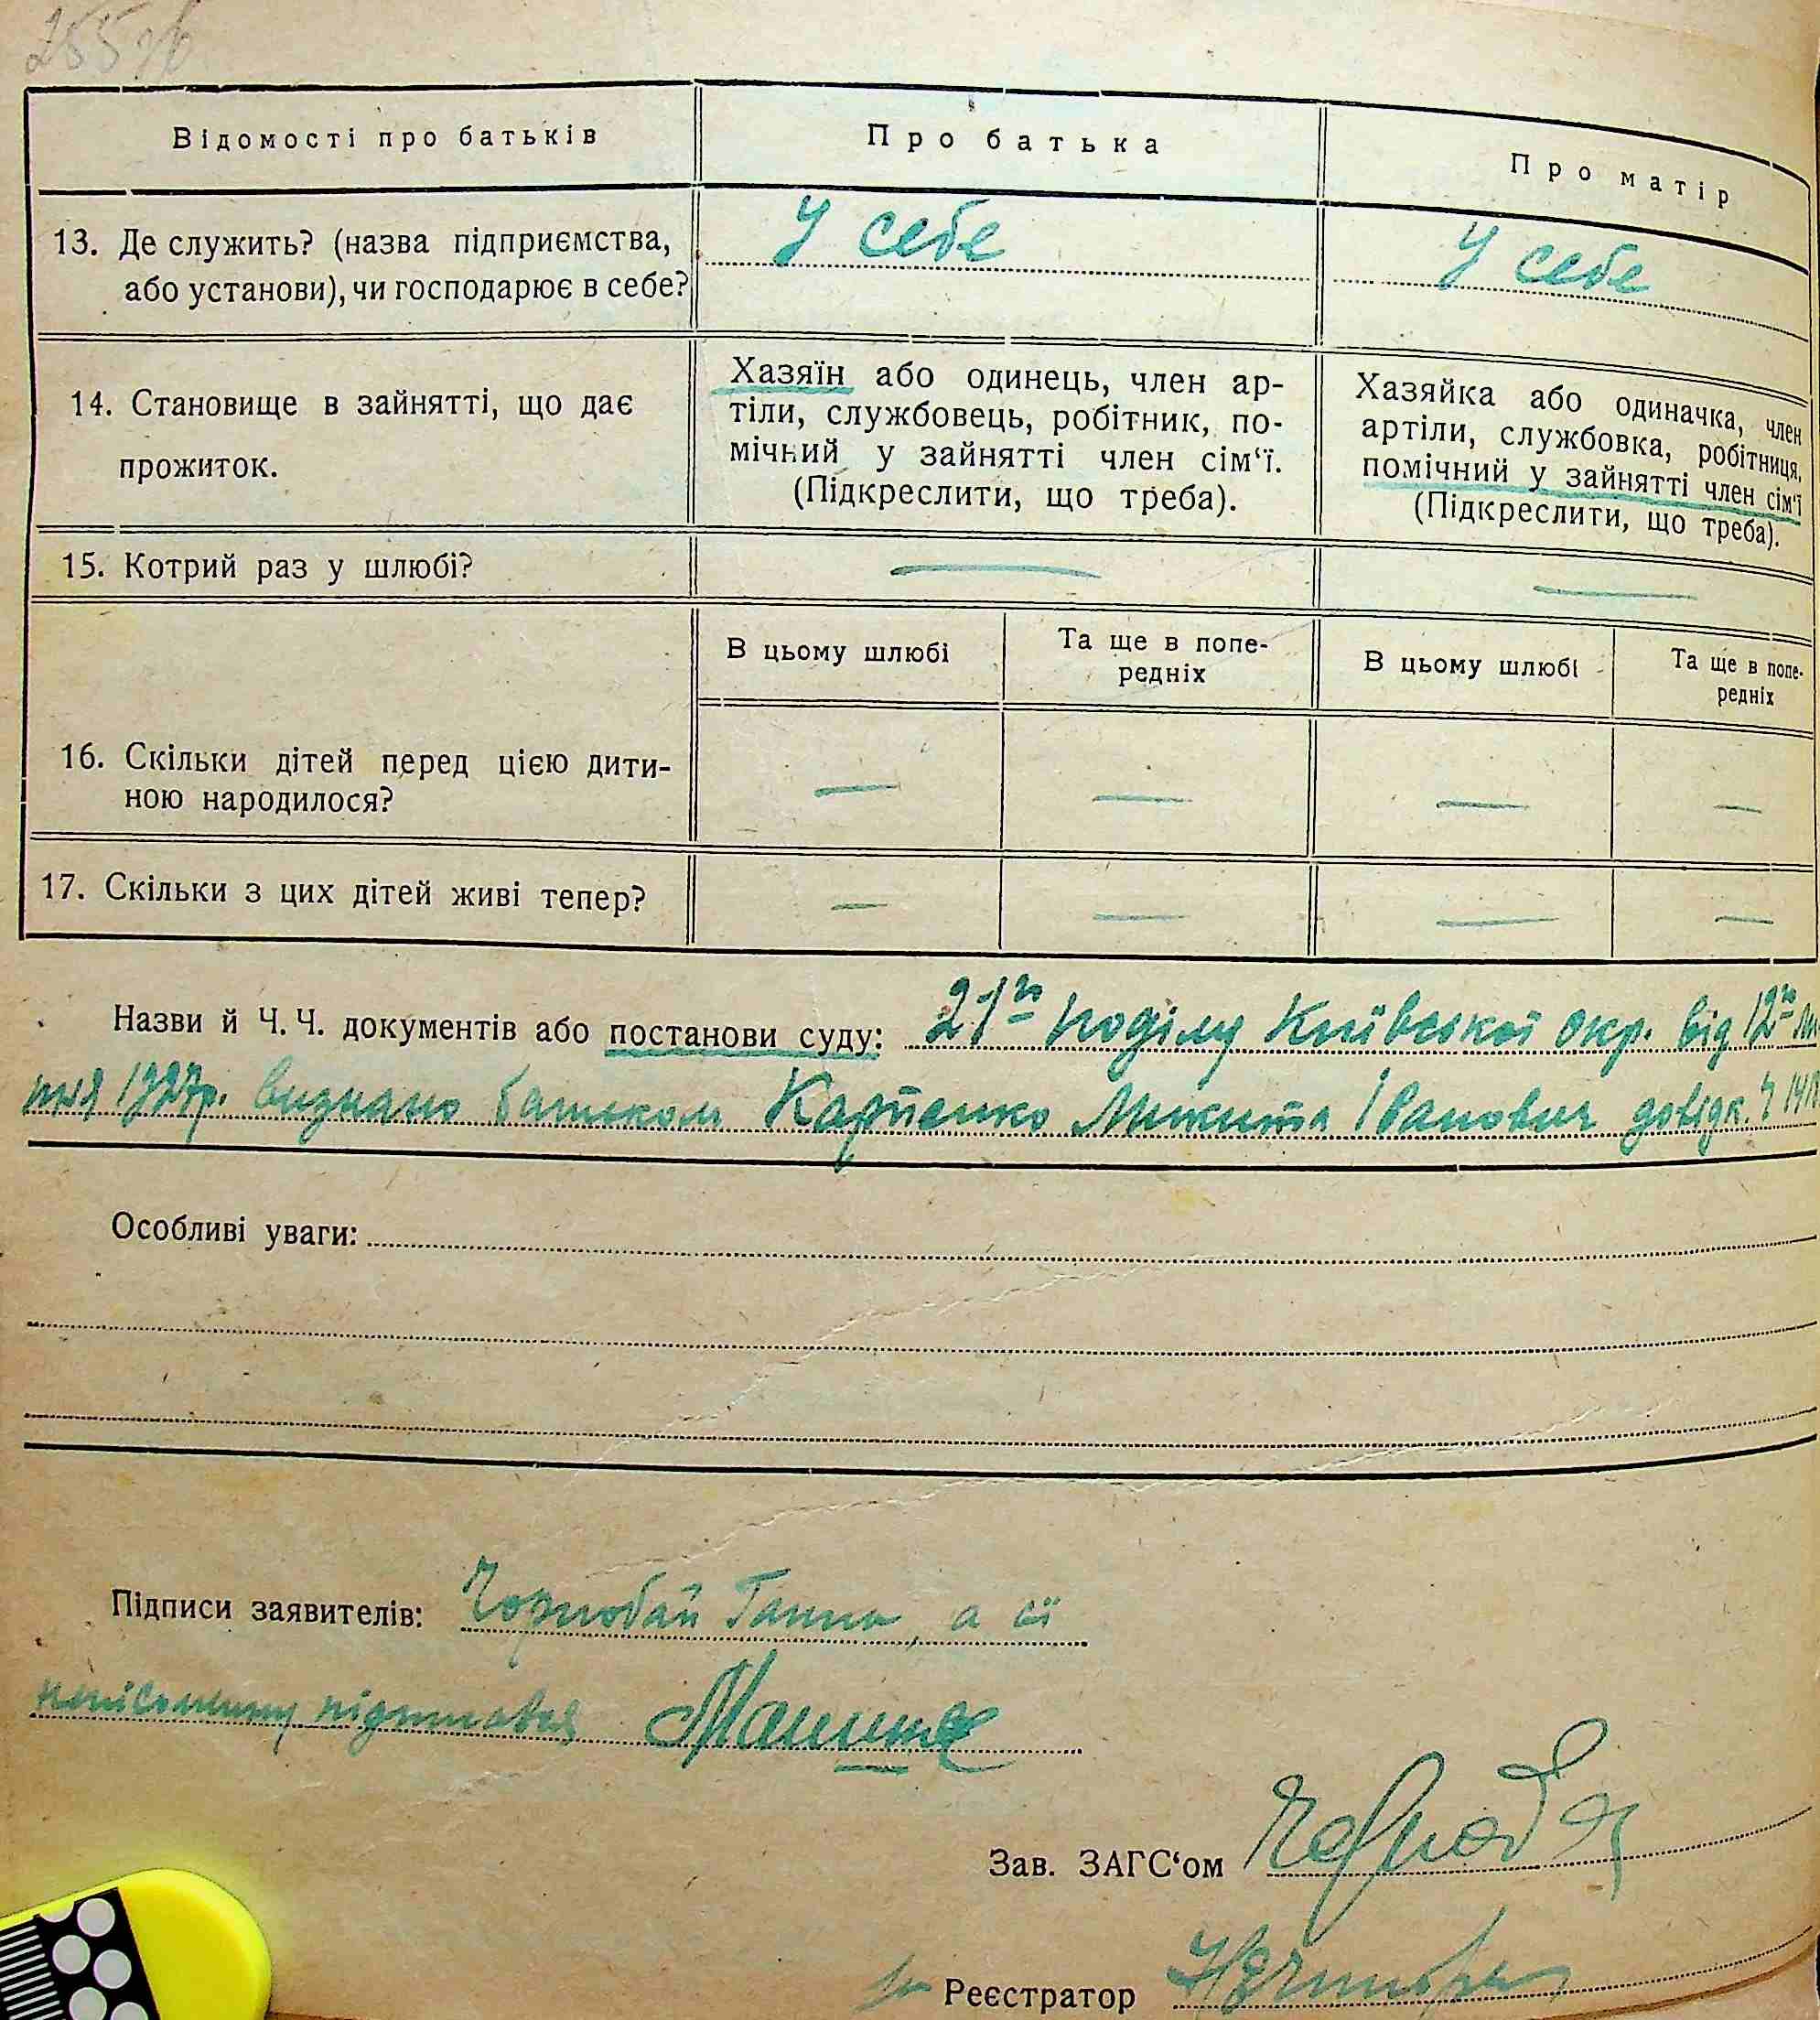 255 зв
Відомості про батьків
Про батька
Про матір
13. Де служить? (назва підприємства,
або установи), чи господарює в себе?
У себе
У себе
14. Становище в зайнятті, що дає
прожиток.
Хазяїн або одинець, член ар-
тіли, службовець, робітник, по-
мічний у зайнятті член сім‘ї.
(Підкреслити, що треба).
Хазяйка або одиначка, член
артіли, службовка, робітниця,
помічний у зайнятті член сім‘ї
(Підкреслити, що треба).
15. Котрий раз у шлюбі?
В цьому шлюбі
Та ще в попе-
редніх
В цьому шлюбі
Та ще в попе-
редніх
16. Скільки дітей перед цією дити-
ною народилося?
17. Скільки з цих дітей живі тепер?
Назви й Ч. Ч. документів або постанови суду: 21го поділу Київської окр. від 12го ли
пня 1927р. визнано батьком Карпенко Микита Іванович довідк. Ч
Особливі уваги:
Підписи заявителів: Чорнобай Ганна, а її
неписьменну підписався
Зав. ЗАГС‘ом
Реєстратор